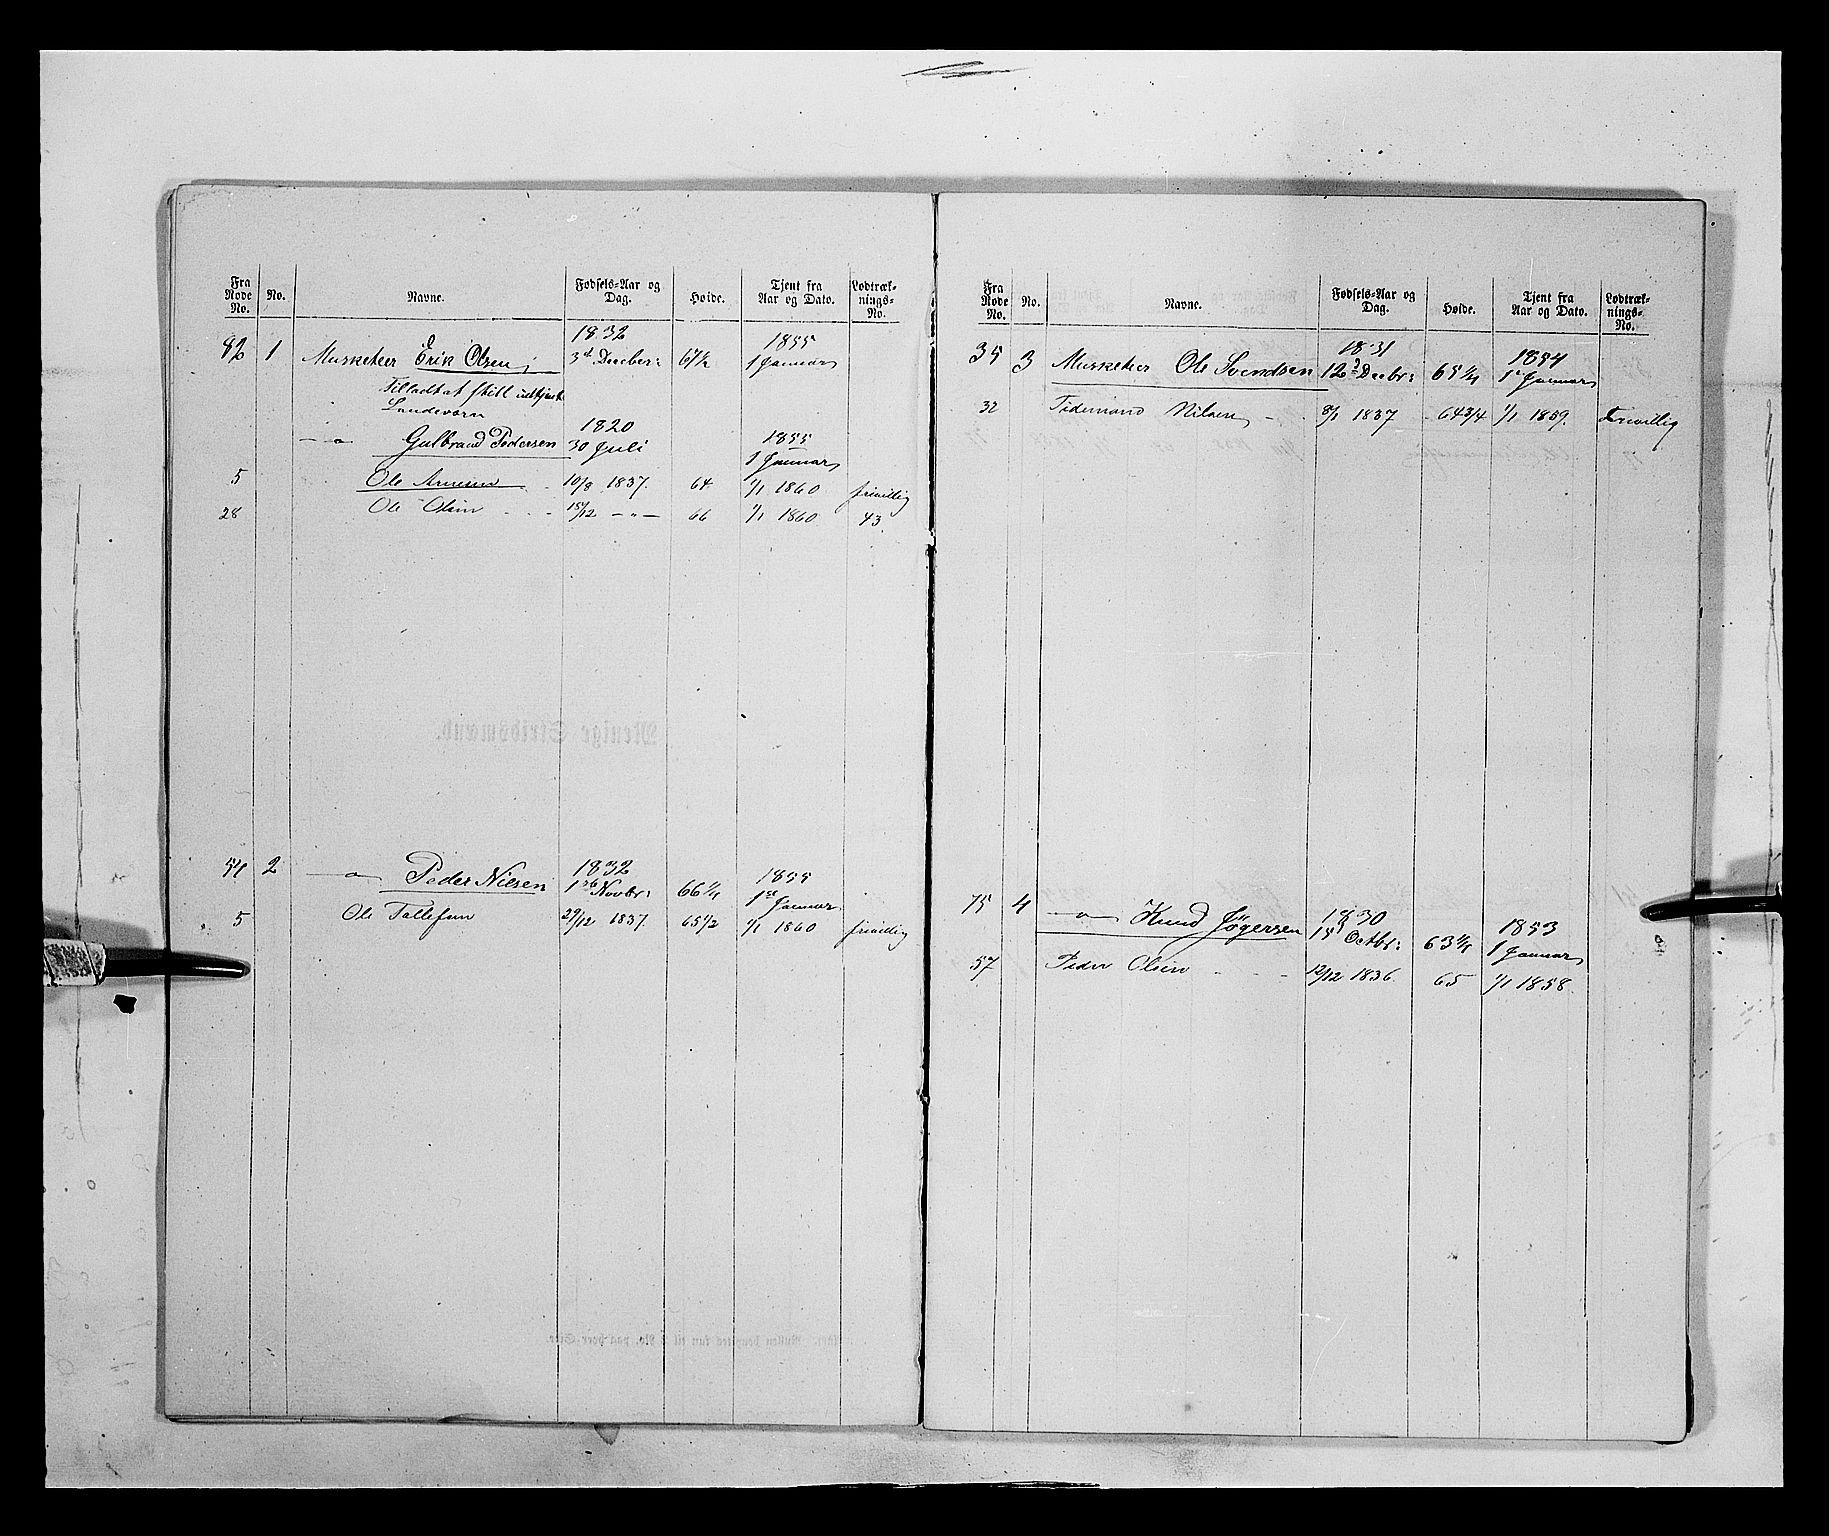 Fra Rode No. | No. | Navne. | Fødsels-Aar og Dag. | Høide. | Tjent fra Aar og Dato. | Lodtræk-nings-No.
82 1 Musketeer Erik Olsen 1832 3d Decbber: 67½ 1855 1 Januar
Tilladt at
Landeværn
—〃— Gulbrand Pedersen 1820 30 Juli 1855 1 Januar
5 Ole 10/8 1837. 64 1/1 1860 frivillig
28 Ole Olsen 15/12 —〃— 66 1/1 1860 43.
54 2 —〃— Peder Nielsen 1832 1ste Novbr: 66¼ 1855 1ste Januar
5 Ole Tollefsen 29/12 1837. 65½ 1/1 1860 frivillig
Fra Rode No. | No. | Navne. | Fødsels-Aar og Dag. | Høide. | Tjent fra Aar og Dato. | Lodtræk-nings-No.
35 3 Musketeer Ole Svendsen 1831 12 Decbr: 65¼ 1854 1e Januar
32 Tidemand Nilsen 8/1 1837 64 3/4 1/1 1859. Frivillig
75 4 —〃— Knud Jøgersen 1830 15 Octbr: 63¼ 1853 1 Januar
57 Peder Olsen 12/12 1836. 65 1/1 1858.